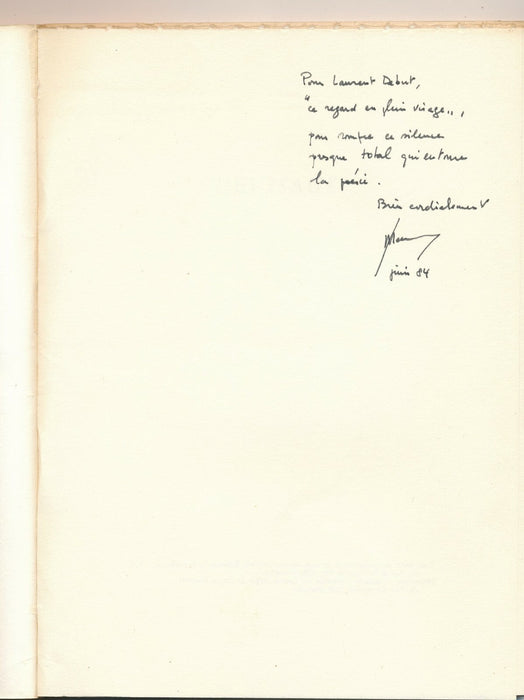 Pour Laurent Debut,
"ce regard en plein visage",
pour rompre ce silence
presque total qui entoure
la poésie.
Bien cordialement
juin 84